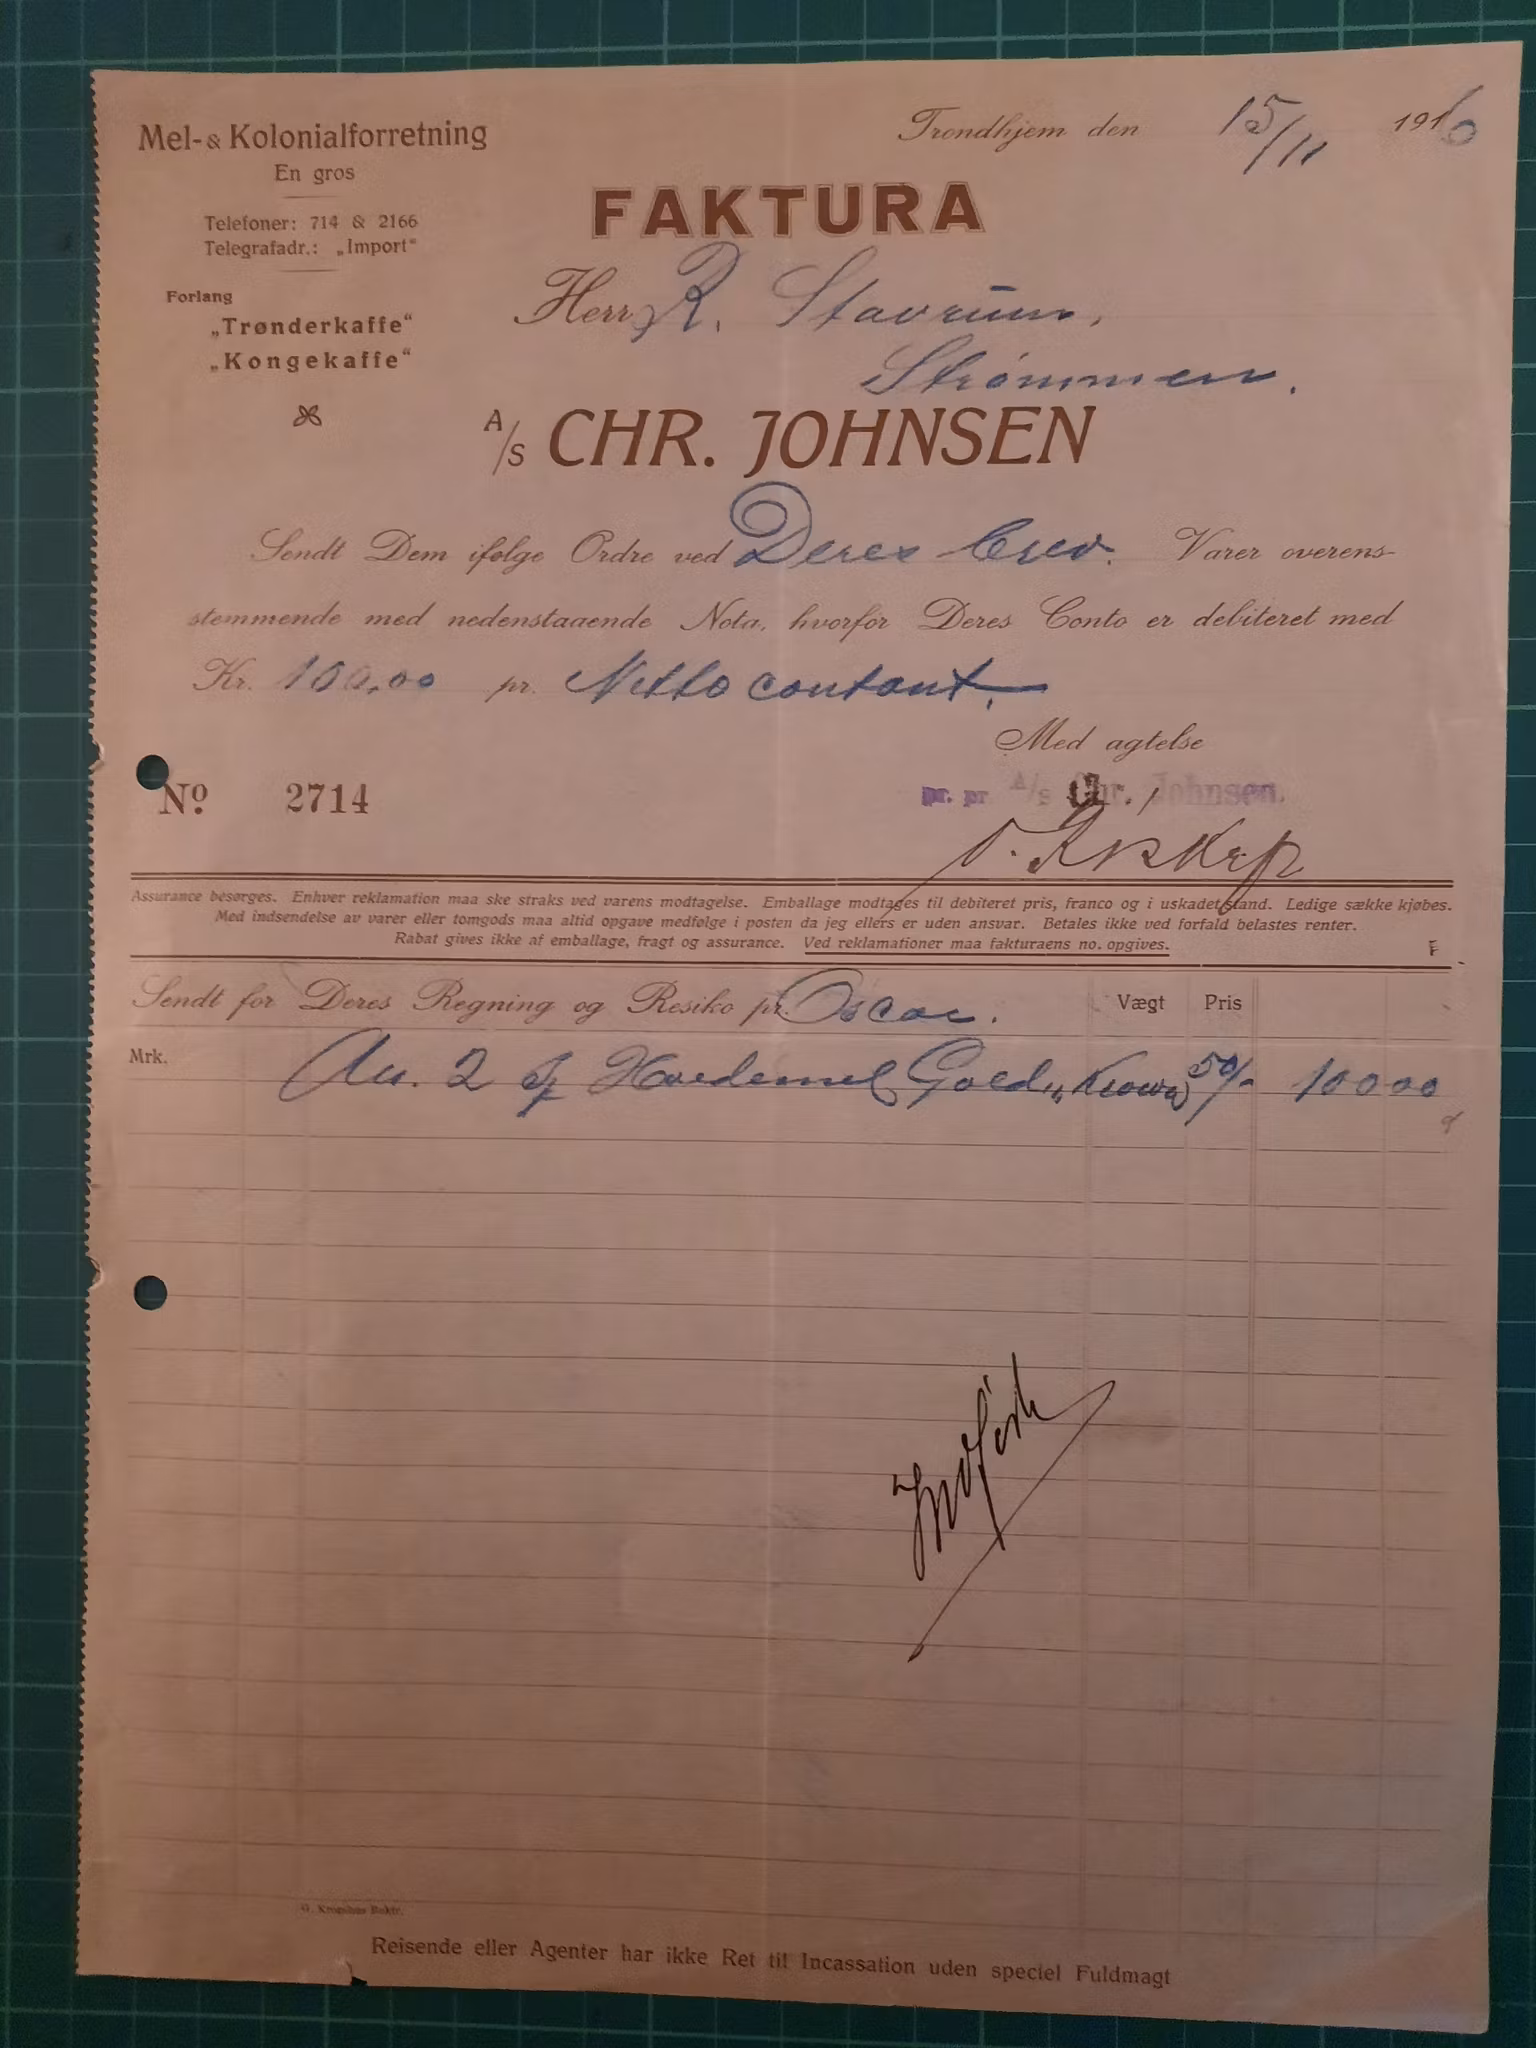 Mel- & Kolonialforretning
En gros
Telefoner: 714 & 2166
Telegrafadr.: „Import“
Forlang
„Trønderkaffe“
„Kongekaffe“
Trondhjem den 15/11 1916
FAKTURA
Herr R. Stavrum,
Strømmen.
A/S CHR. JOHNSEN
Sendt Dem ifølge Ordre ved Deres brev. Varer overens-
stemmende med nedenstaaende Nota, hvorfor Deres Conto er debiteret med
Kr. 100,00 pr. Netto contant.
Med agtelse
pr. pr. A/S Chr. Johnsen.
No. 2714
Assurance besørges. Enhver reklamation maa ske straks ved varens modtagelse. Emballage modtages til debiteret pris, franco og i uskadet stand. Ledige sække kjøbes.
Med indsendelse av varer eller tomgods maa altid opgave medfølge i posten da jeg ellers er uden ansvar. Betales ikke ved forfald belastes renter.
Rabat gives ikke af emballage, fragt og assurance. Ved reklamationer maa fakturaens no. opgives.
F
Sendt for Deres Regning og Resiko pr. Oscar. Vægt Pris
Mrk. 2 Hvedemel Gold 50/- 100 00
G. Krogshus Boktr.
Reisende eller Agenter har ikke Ret til Incassation uden speciel Fuldmagt